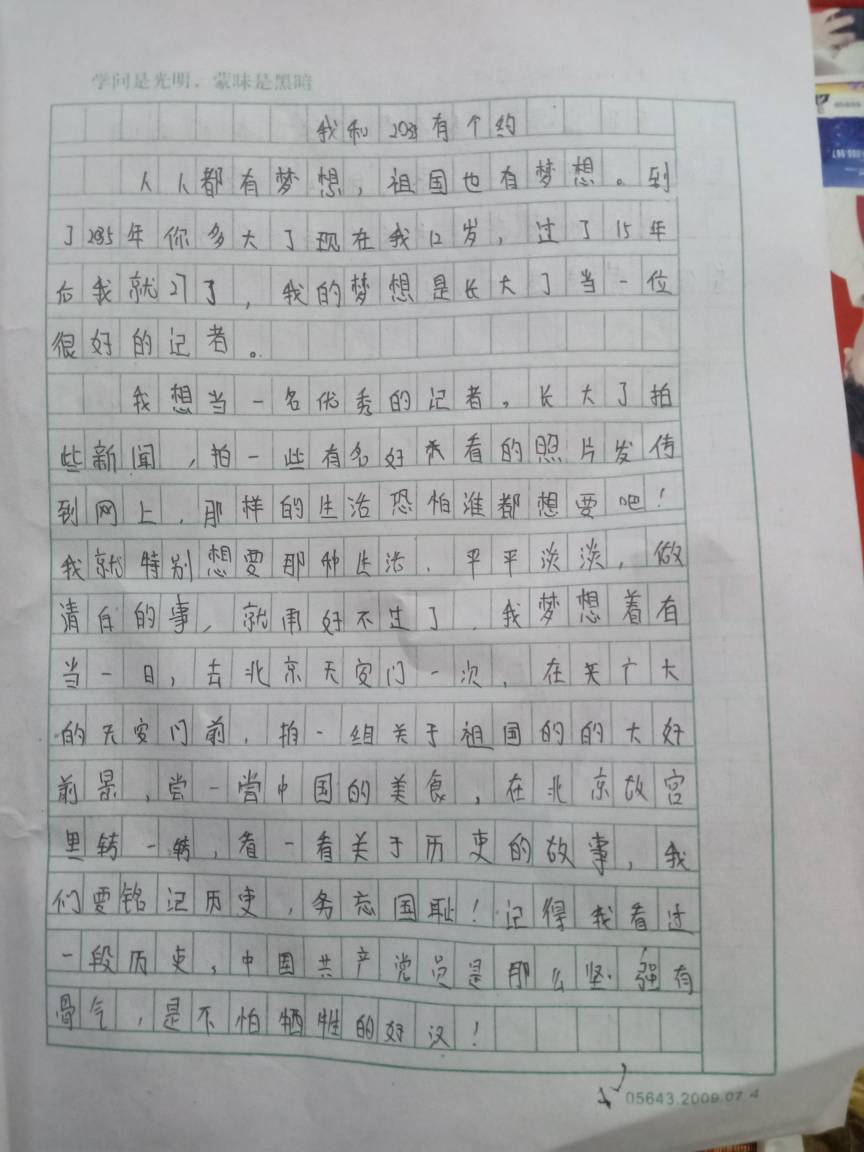 学问是光明，蒙昧是黑暗
我和2035有个约
人人都有梦想，祖国也有梦想。到
了2035年你多大了现在我12岁，过了15年
后我就27了，我的梦想是长大了当一位
很好的记者。
我想当一名优秀的记者。长大了拍
些新闻，拍一些有名好看的照片发传
到网上，那样的生活恐怕谁都想要吧！
我就特别想要那种生活．平平淡淡，做
清白的事，就再好不过了．我梦想着有
当一日，去北京天安门一次，在广大
的天安门前，拍一组关于祖国的的大好
前景，尝一尝中国的美食，在北京故宫
里转一转，看一看关于历史的故事，我
们要铭记历史，务忘国耻！记得我看过
一段历史，中国共产党员是那么坚强有
骨气，是不怕牺牲的好汉！
05643.2009.07.4